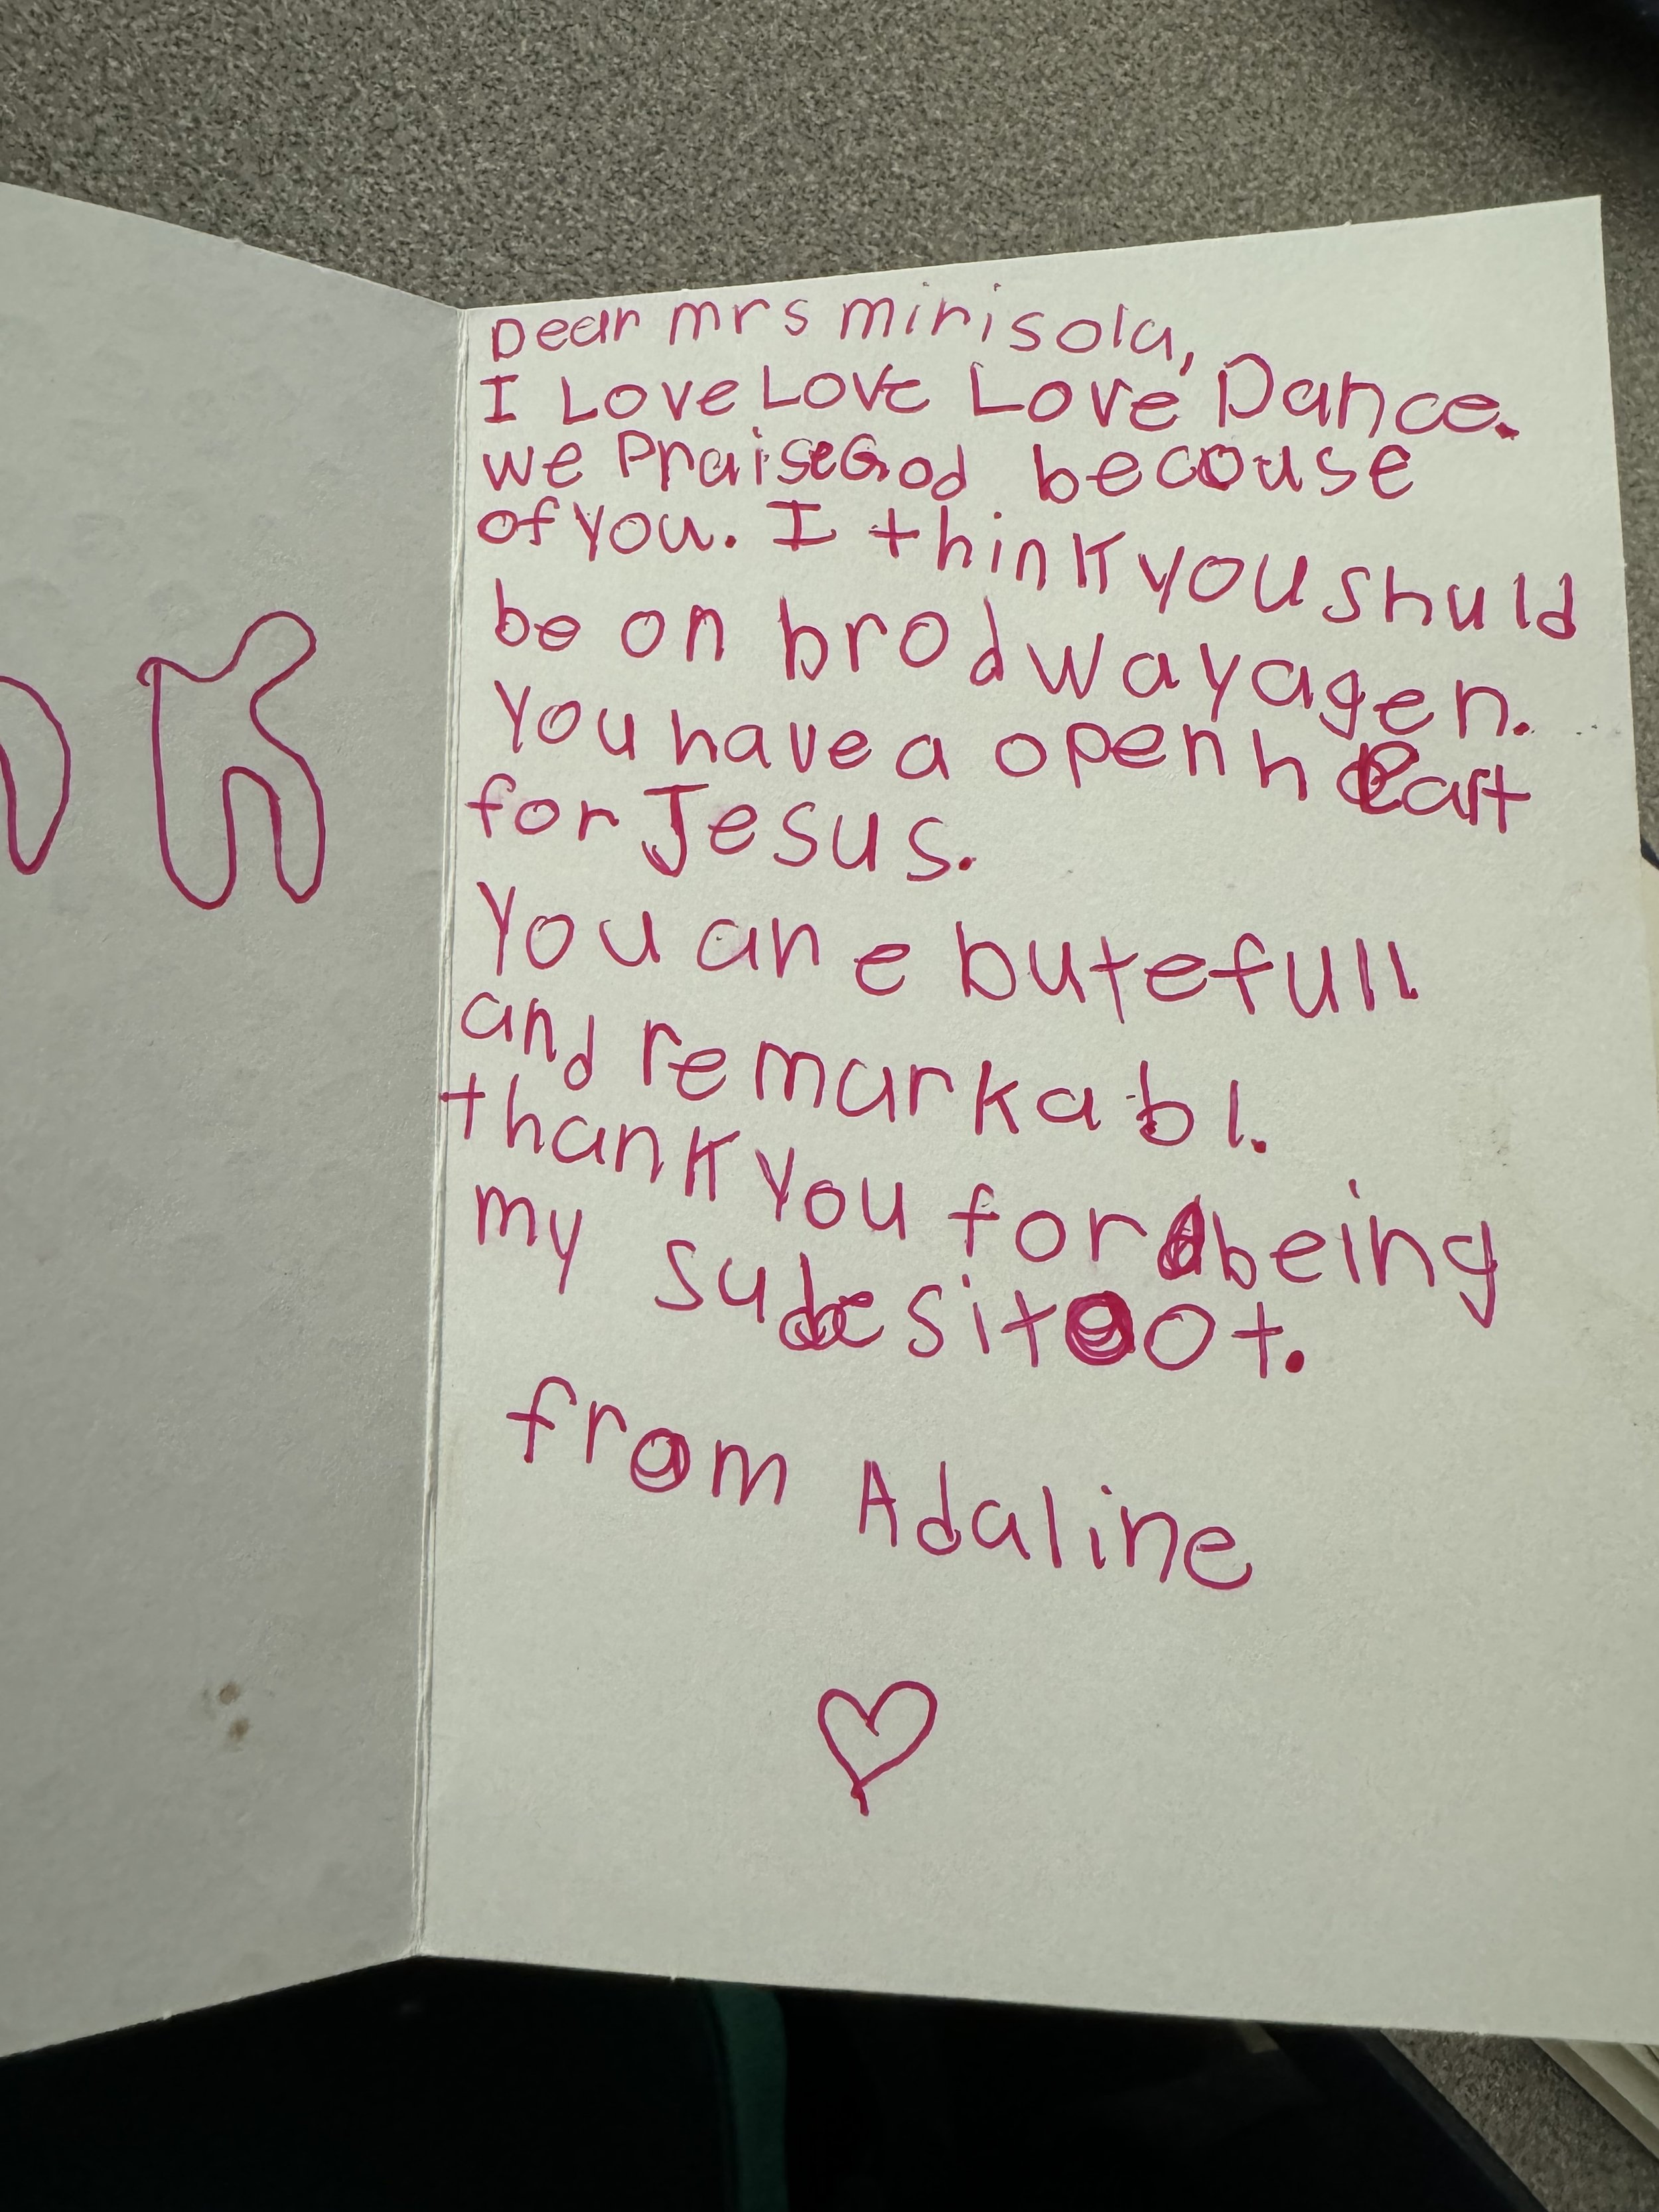 K
Dear mrs minisola,
I Love Love Love Dance.
we Praise God becouse
of you. I think you shuld
be on brodway agen.
You have a open heart
for Jesus.
You are butefull
and remarkabl.
thank you for being
my subesitoot.
from Adaline